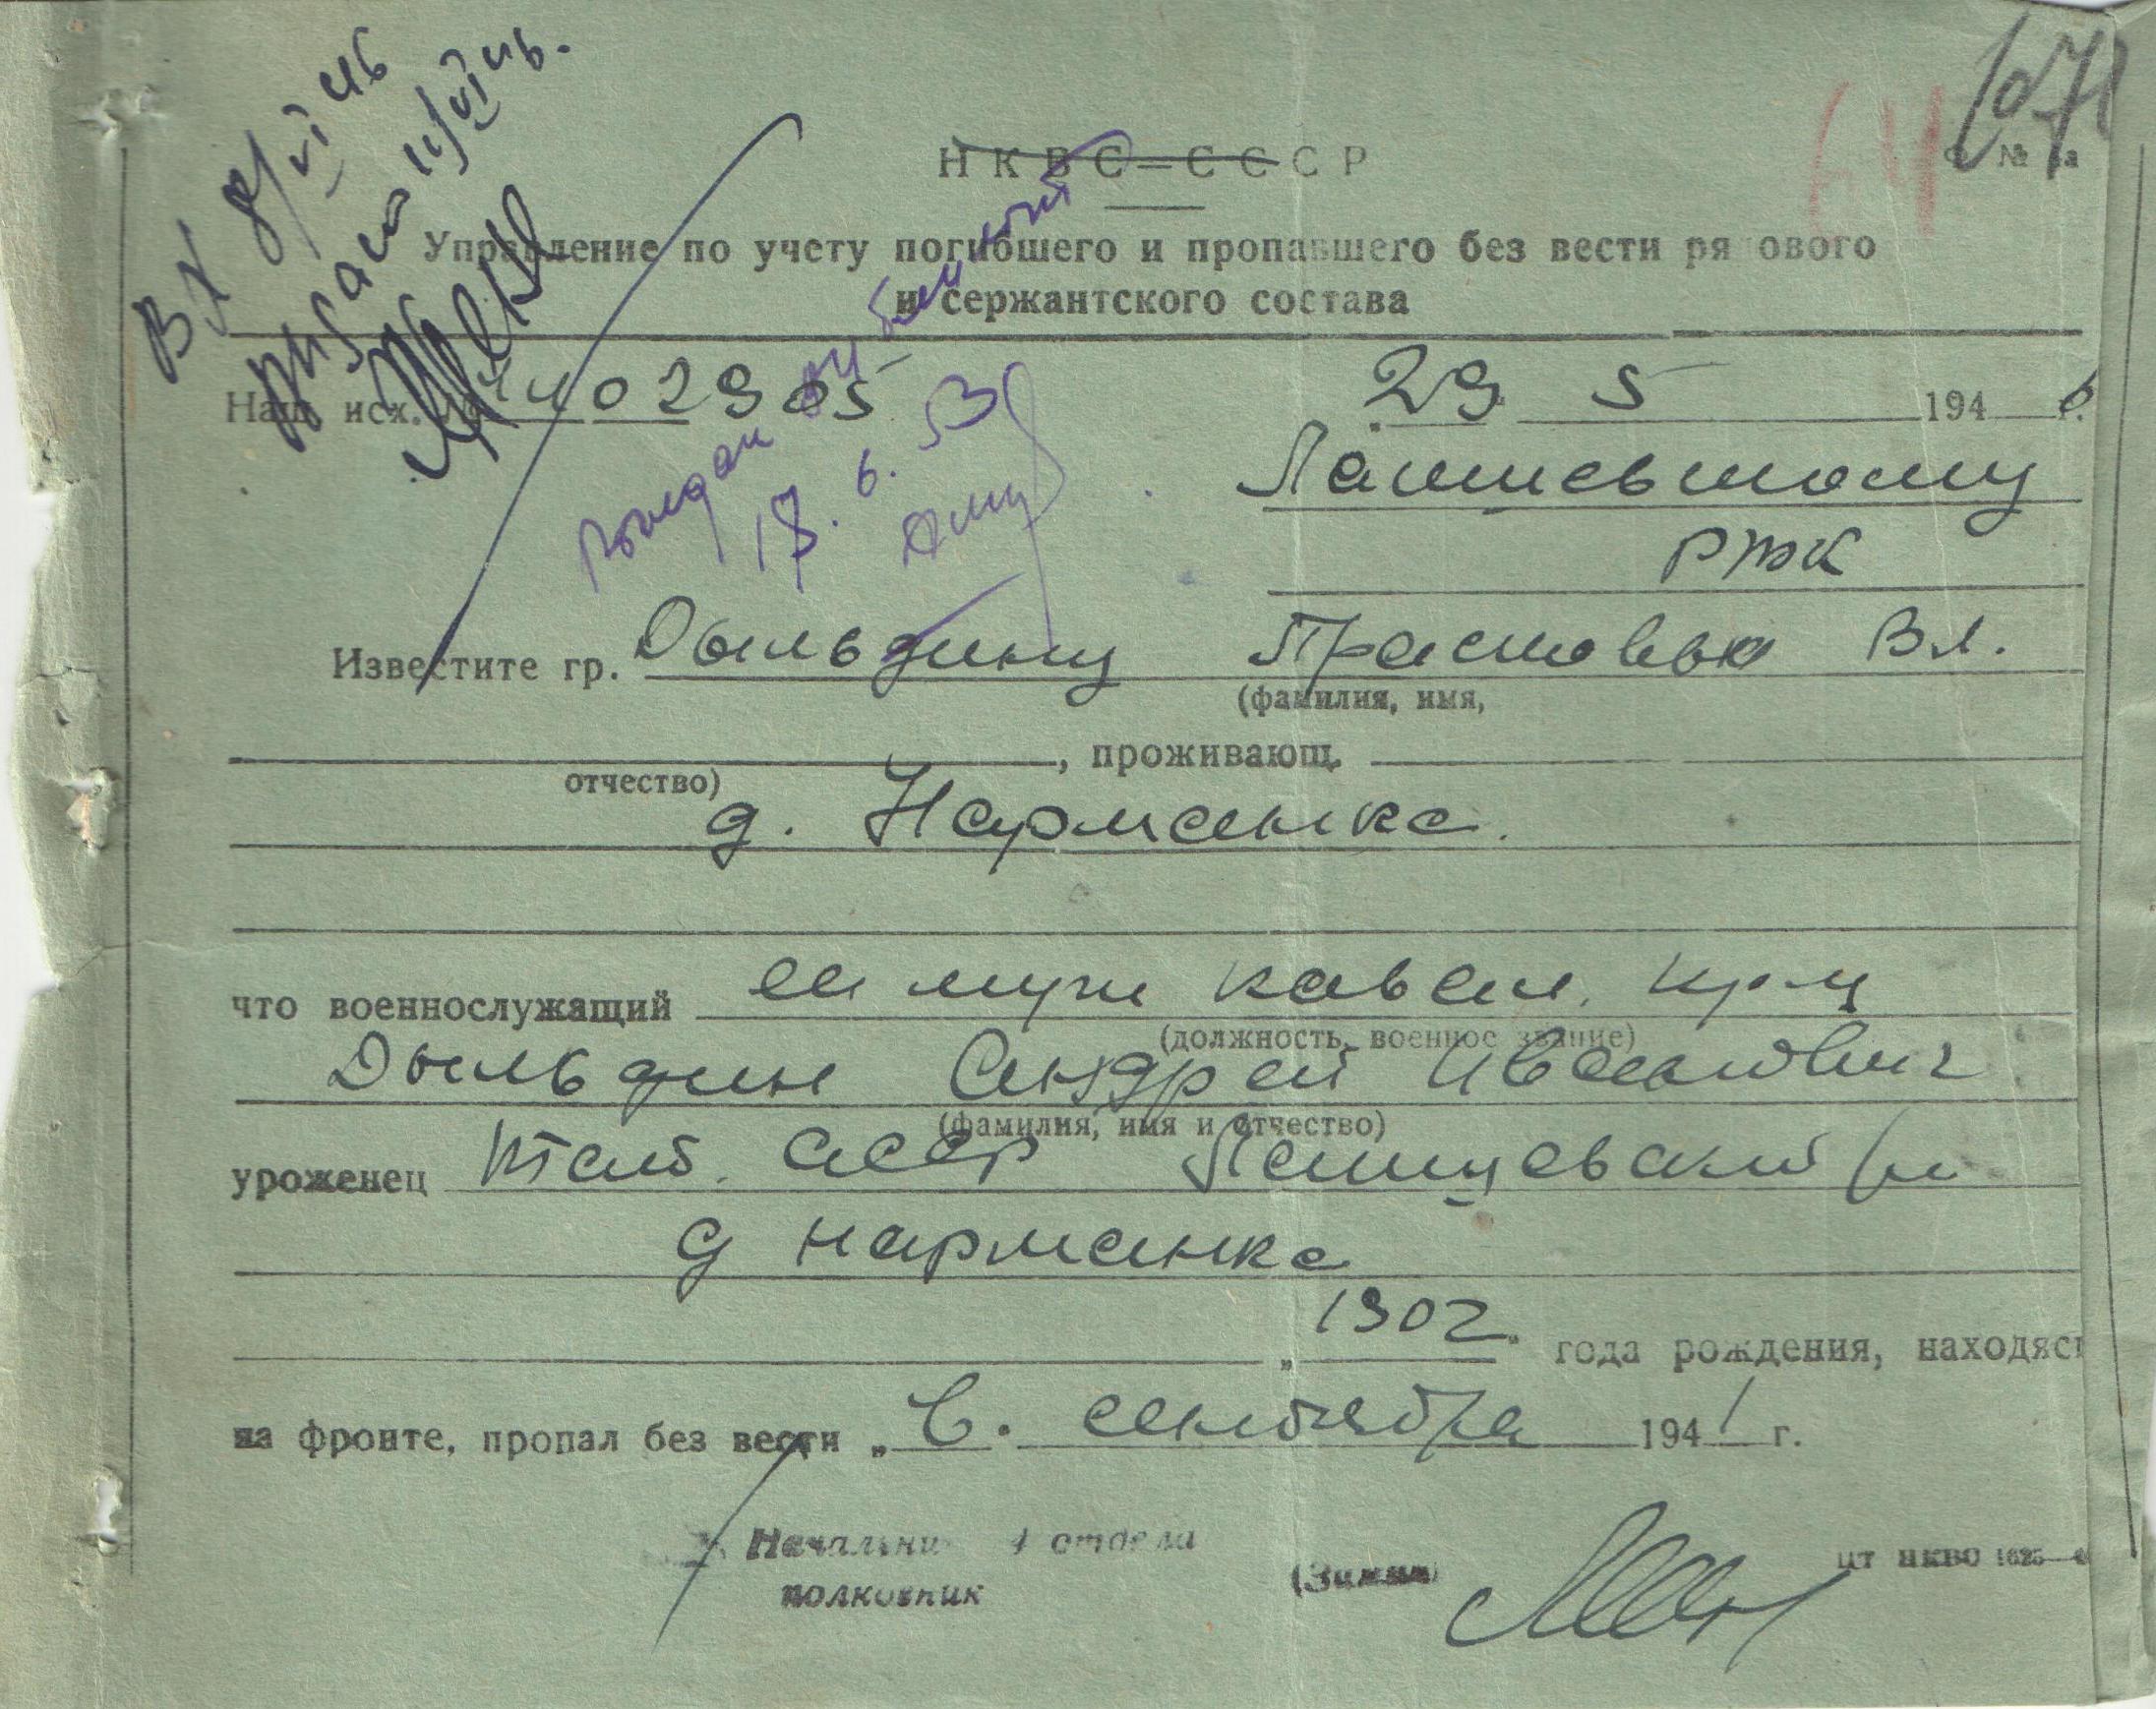 1071
64
Вх 8/VI 46
НКВС–СССР
№
Управление по учету погибшего и пропавшего без вести рядового
и сержантского состава
Наш исх. № 02905
29 5 1946 г.
17. 6. 53
РВК
Известите гр. Дыльдину Прасковья Вл.
(фамилия, имя,
отчество)
, проживающ.
д. Нармонка.
что военнослужащий ее муж кавал. кр-ц
(должность, военное звание)
Дыльдин Андрей Иванович
(фамилия, имя и отчество)
уроженец Тат. АССР Лаишевский р-н
д Нармонка
„1902" года рождения, находясь
на фронте, пропал без вести „В. сентября 1941 г.
Начальник 4 отдела
полковник
(Зимин)